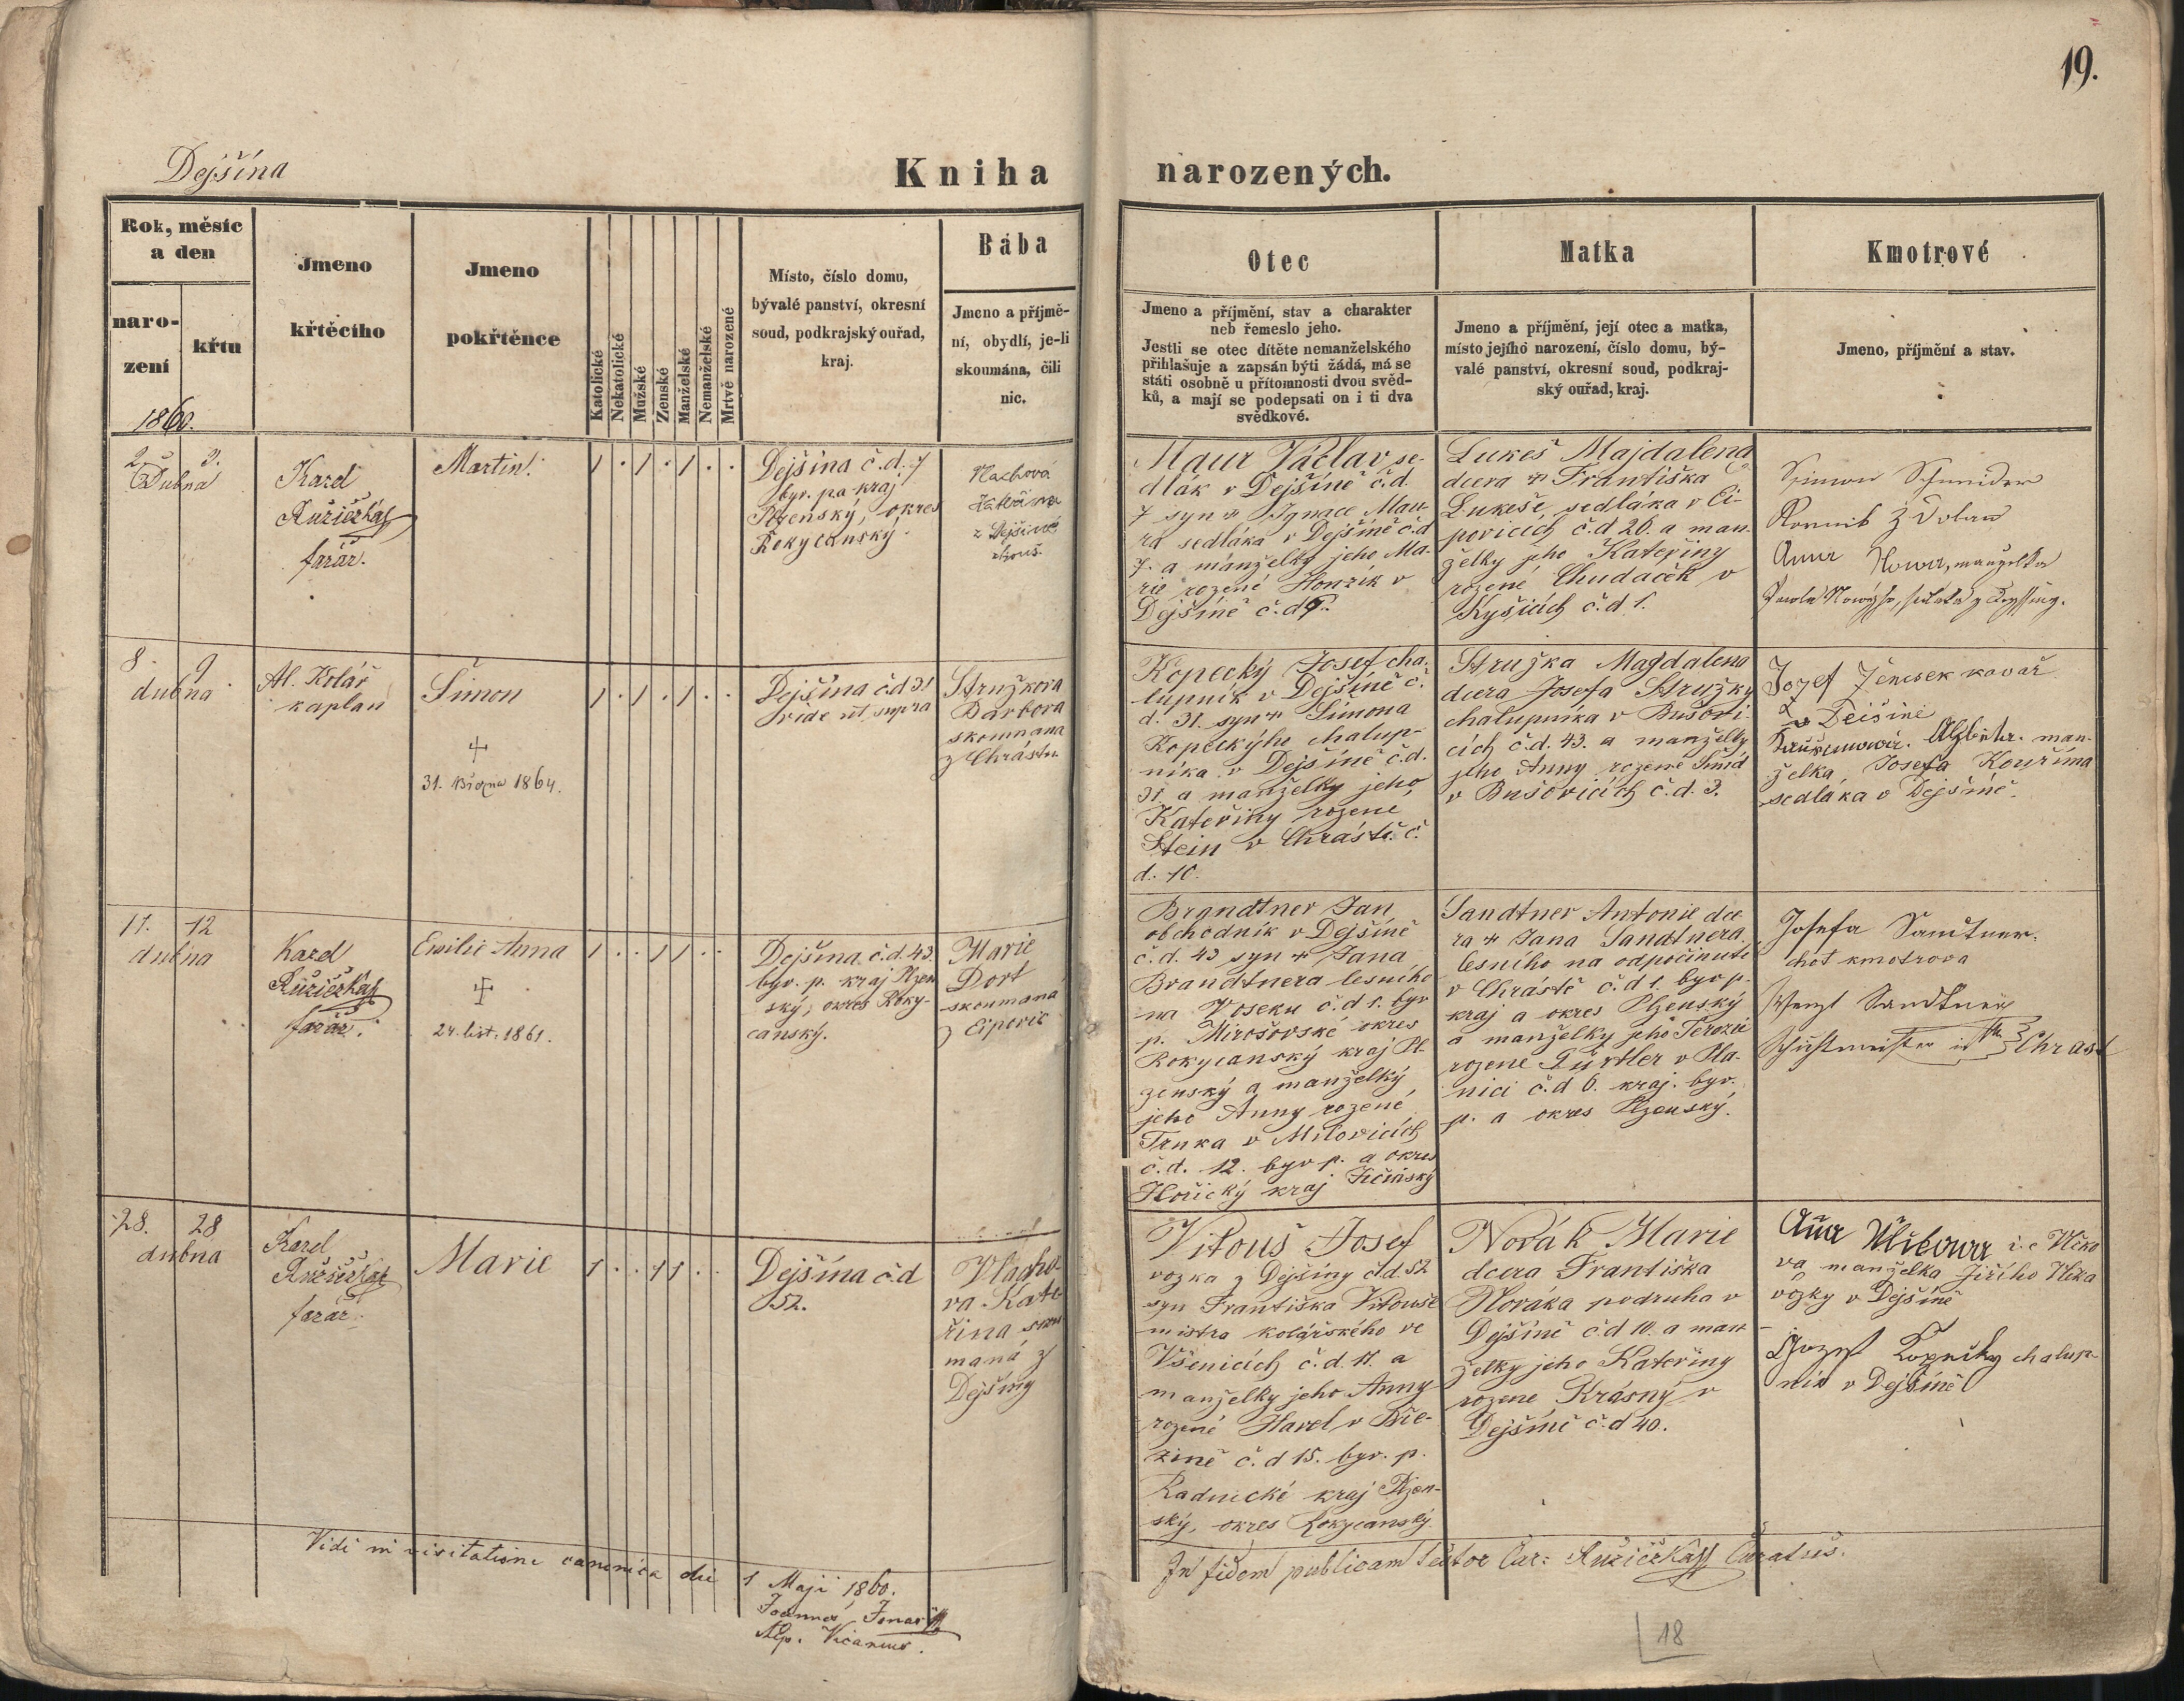 19.
Dejšína
Kniha narozených.
Rok, měsíc
a den
naro-
zení
křtu
1860.
Jmeno
křtěcího
Jmeno
pokřtěnce
Katolické
Nekatolické
Mužské
Ženské
Manželské
Nemanželské
Mrtvě narozené
Místo, číslo domu,
bývalé panství, okresní
soud, podkrajský ouřad,
kraj.
Bába
Jmeno a příjmě-
ní, obydlí, je-li
skoumána, čili
nic.
Otec
Jmeno a příjmění, stav a charakter
neb řemeslo jeho.
Jestli se otec dítěte nemanželského
přihlašuje a zapsán býti žádá, má se
státi osobně u přítomnosti dvou svěd-
ků, a mají se podepsati on i ti dva
svědkové.
Matka
Jmeno a příjmění, její otec a matka,
místo jejího narození, číslo domu, bý-
valé panství, okresní soud, podkraj-
ský ouřad, kraj.
Kmotrové
Jmeno, příjmění a stav.
2. 3.
Dubna
Karel
Růžička
farář.
Martin.
1 . 1 . 1 . .
Dejšina č.d. 7
byv. pa kraj
Plzenský, okres
Rokycanský.
Vlachová
Kateřina
z Dejšiné
zkouš.
Maur Václav se-
dlák v Dejšíně č.d.
7 syn Ignace Mau-
ra sedláka v Dejšíně č.d
7. a manželky jeho Ma-
rie rozené Honzík v
Dejšíně č.d
Lukeš Majdalena
dcera Františka
Lukeše, sedláka v Ei-
povicích č.d 26. a man-
želky jeho Kateřiny
rozené Chudaček v
Kyšicích č.d 1.
Simon Schneider
z Dolan
Anna Nowa, manželka
8. 9.
dubna
Al. Kolář
kaplan
Šimon
31. Března 1864.
1 . 1 . 1 . .
Dejšína č.d 31
vide ut supra
Stružkova
Barbora
skoumana
z Chrástu
Kopecký Josef cha-
lupník v Dejšíně č.
d. 31. syn Šimona
Kopeckýho chalup-
níka v Dejšíně č.d.
31 a manželky jeho
Kateřiny rozené
Stein v Chrástě č.
d. 10.
Stružka Magdalena
dcera Josefa Stružky
chalupníka v Bušovi-
cích č.d. 43. a manželky
jeho Anny rozené Šmíd
v Bušovicích č.d. 3.
Jozef kovář
v Dejšině
Alžběta man-
želka Josefa Kouříma
sedláka v Dejšíně.
11. 12
dubna
Karel
Růžička
farář.
Emilie Anna
24. list. 1861.
1 . . 1 1 . .
Dejšína č.d. 43.
byv. p. kraj Plzen
ský, okres Roky-
canský.
Marie
Dort
skoumaná
z Eipovic
Brandtner Jan
obchodník v Dejšíně
č.d. 43 syn Jana
Brandtnera lesního
na Voseku č.d 1. byv
p. Mirošovské okres
Rokycanský kraj Pl-
zenský a manželky
jeho Anny rozené
Trnka v Milovicích
č.d. 12. byv p. a okres
Hořický kraj Jičínský
Sandtner Antonie dce
ra Jana Sandtnera
lesního na odpočinutí
v Chrástě č.d 1. byv p.
kraj a okres Plzenský
a manželky jeho Terezie
rozene Gürtler v Pla-
nici č.d 6. kraj. byv.
p. a okres Plzenský.
Josefa Sandtner.
chot kmotrova
Wenzl Sandtner
Schichtmeister in Chrast
28. 28
dubna
Karel
Růžička
farář
Marie
1 . . 1 1 . .
Dejšína č.d
52.
Vlacho-
va Kate
řina skou
maná z
Dejšiny
Vitouš Josef
vozka z Dejšiny č.d. 52
syn Františka Vitouše
mistra kolářského ve
Všenicích č.d. 11. a
manželky jeho Anny
rozené Havel v Bře-
zině č.d 15. byv. p.
Radnické kraj Plzen-
ský, okres Rokycanský.
Novák Marie
dcera Františka
Nováka podruha v
Dejšíně č.d 10. a man-
želky jeho Kateřiny
rozene Krásný v
Dejšíně č.d 40.
Ana Wlčkowa i.e. Vlčko
va manželka Jiřího Vlčka
vozky v Dejšíně
Jozef Kopecky chalup-
nik v Dejšíně
Vidi in visitatione canonica die 1 Maji 1860.
Joannes
Vicarius.
In fidem publicam Car: Růžička Curatus.
18